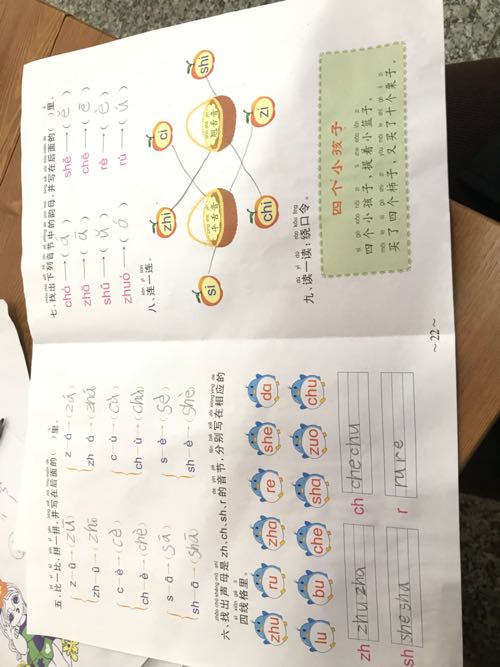 五、比一比,拼一拼,并写在后面的( )里。
z - ū→(zū) z - á→(zá)
zh - ū→(zhū) zh - á→(zhá)
c - è→(cè) c - ù→(cù)
ch - è→(chè) ch - ù→(chù)
s - ā→(sā) s - è→(sè)
sh - ā→(shā) sh - è→(shè)
六、找出声母是 zh、ch、sh、r 的音节,分别写在相应的
四线格里。
zhu ru zha re she da
lu bu che sha zuo chu
zh zhu zha ch che chu
sh she sha r ru re
七、找出下列音节中的韵母,并写在后面的( )里。
chá→(á) shě→(ě)
zhā→(ā) chē→(ē)
shǔ→(ǔ) rè→(è)
zhuó→(ó) rú→(ú)
八、连一连。
zhi ci shi
平舌音 翘舌音
si chi zi
九、读一读:绕口令。
四个小孩子
四个小孩子,提着小篮子,
买了四个柿子,又买了十个栗子。
~22~